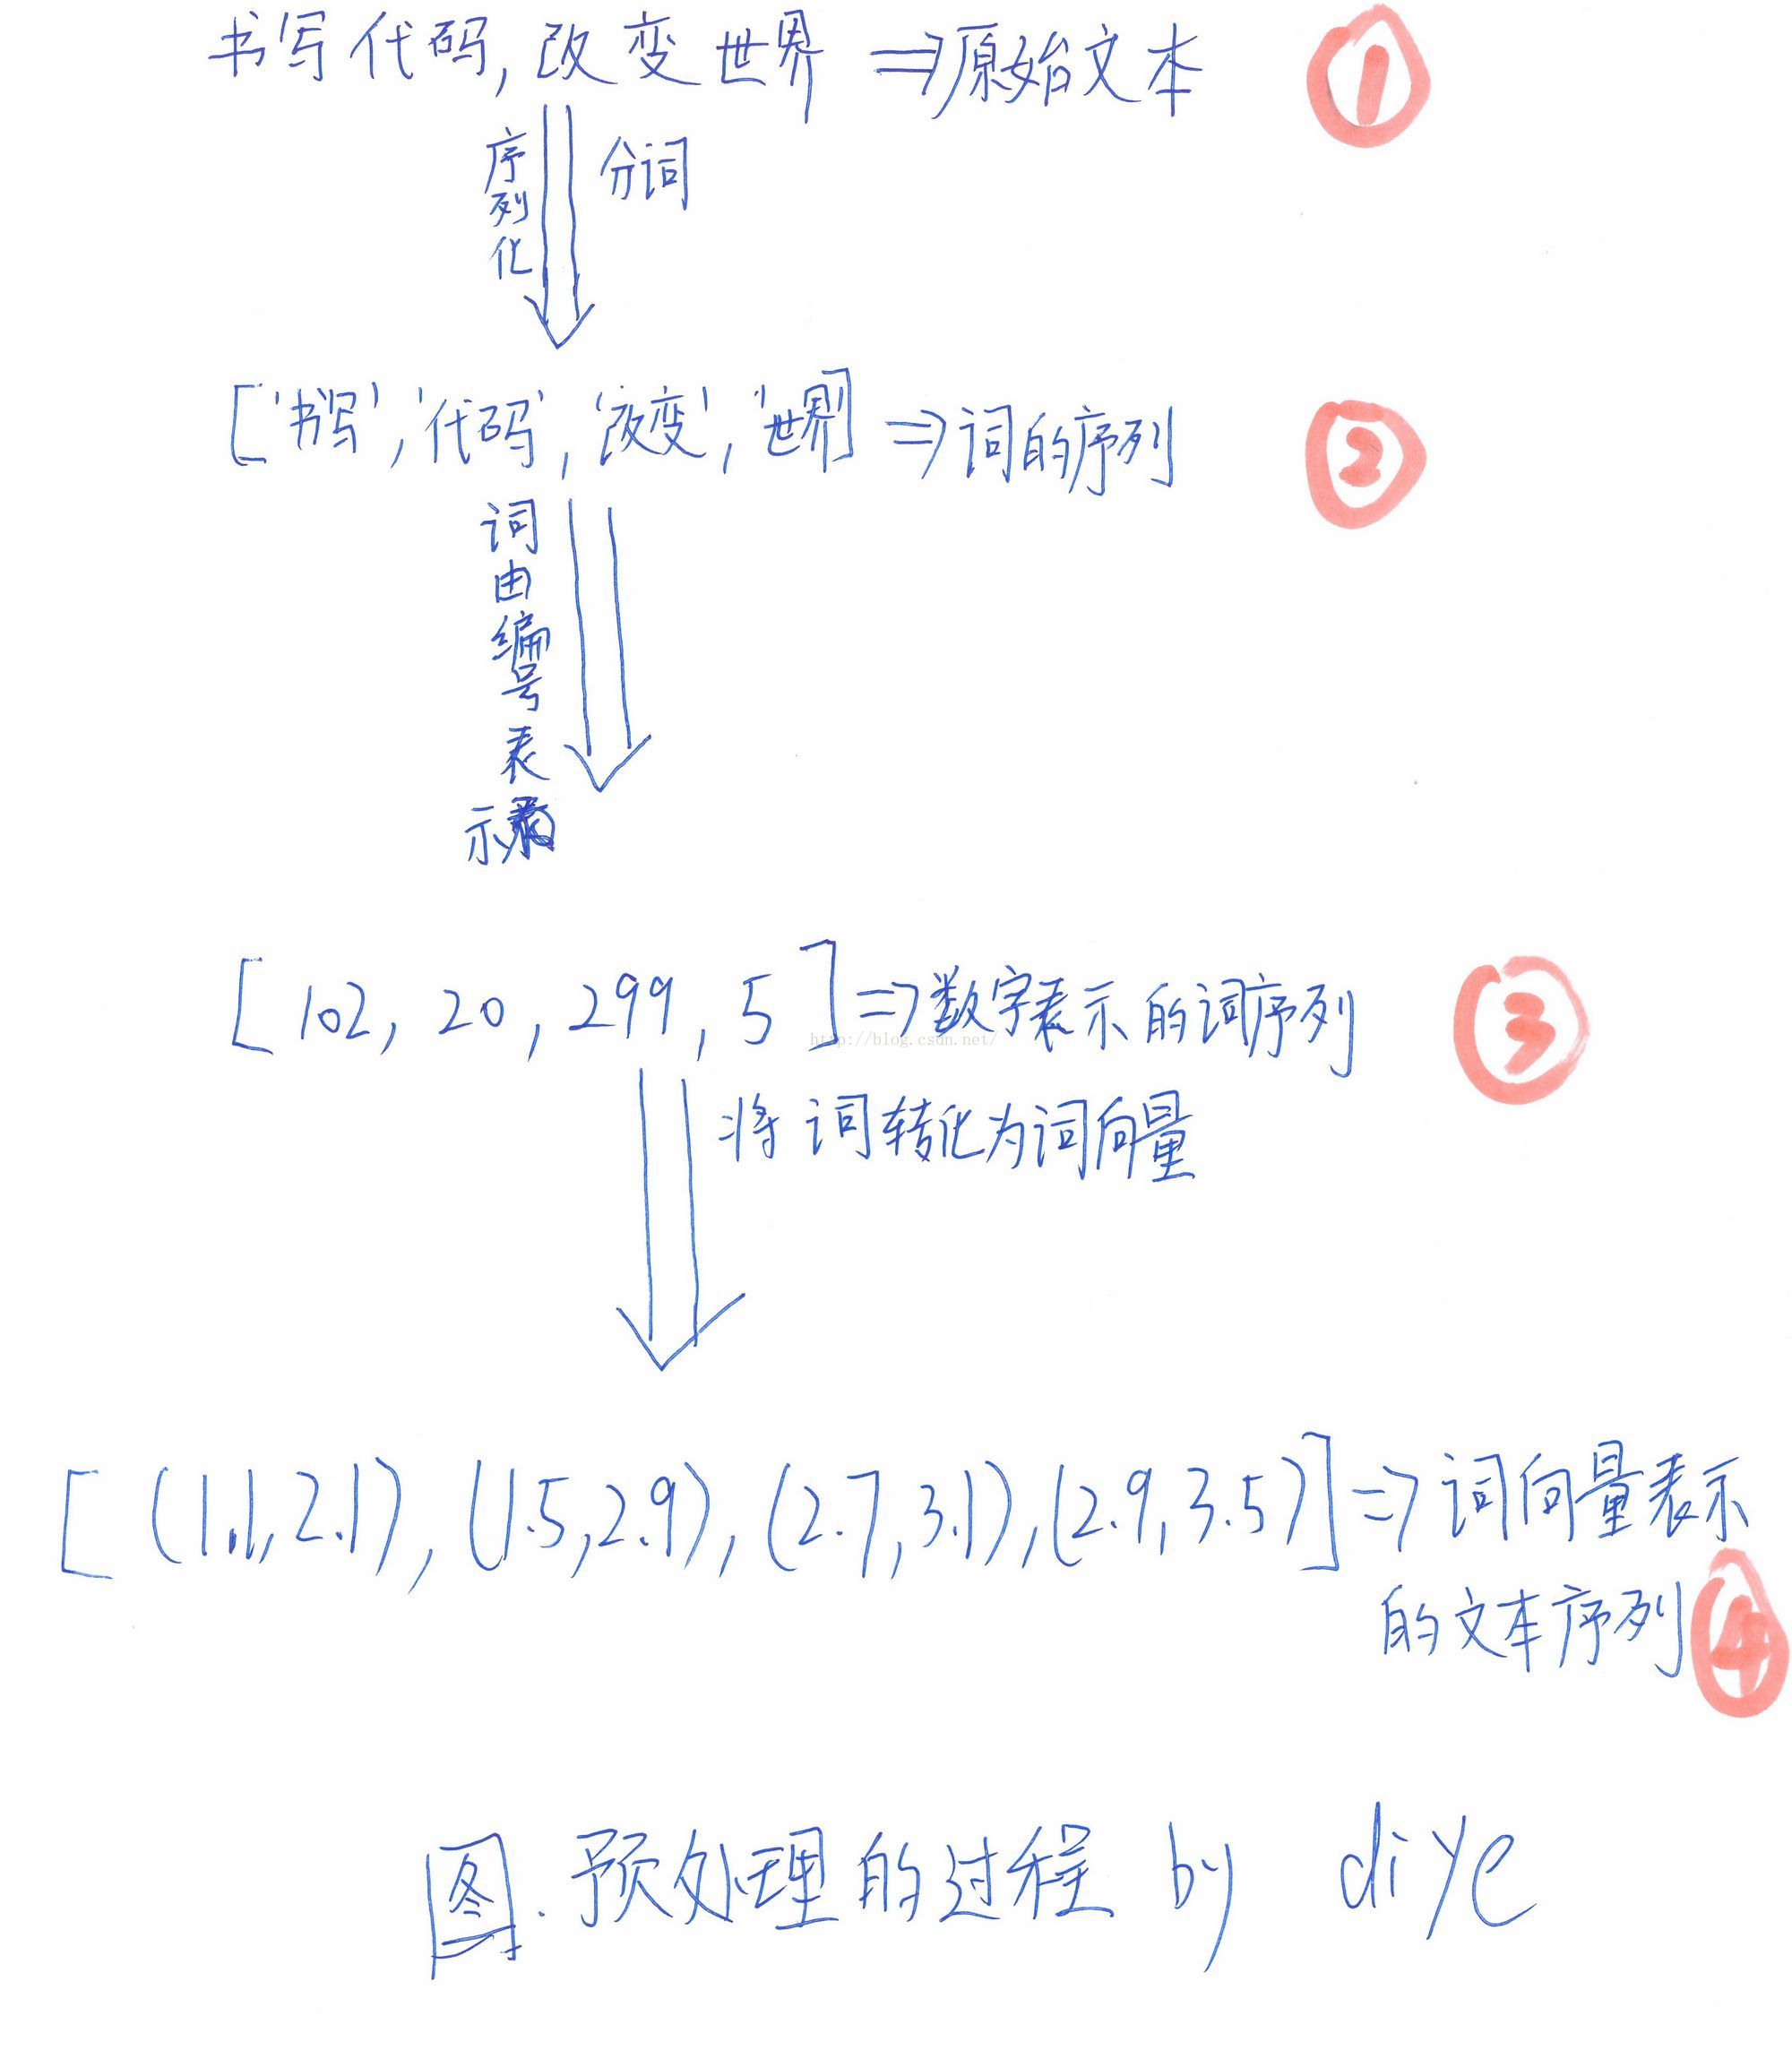 书写代码,改变世界 ⇒原始文本
①
序列化
分词
['书写','代码','改变','世界'] ⇒词的序列
②
词由编号表示
[102, 20, 299, 5]⇒数字表示的词序列
③
http://blog.csdn.net/
将词转化为词向量
[(1.1,2.1),(1.5,2.9),(2.7,3.1),(2.9,3.5)]⇒词向量表示
的文本序列
④
图.预处理的过程 by diye